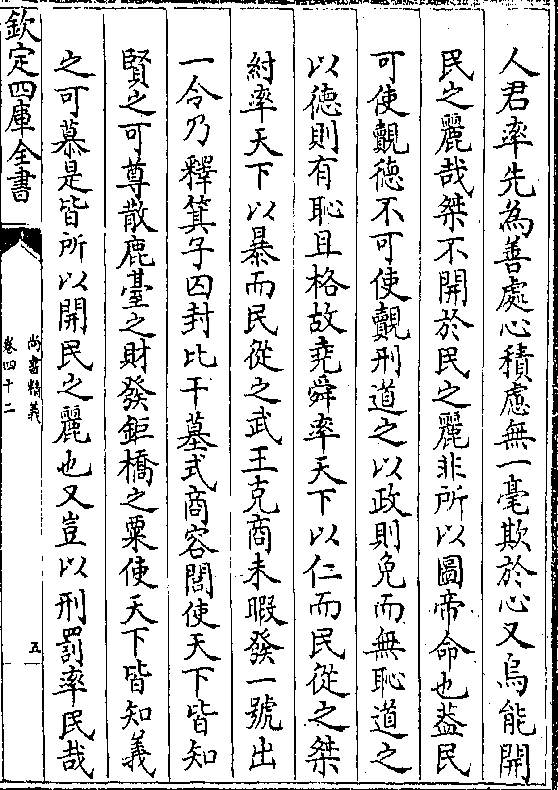 人君率先為善處心積慮無一毫欺於心又烏能開
民之麗哉桀不開於民之麗非所以圖帝命也葢民
可使觀徳不可使觀刑道之以政則免而無恥道之
以徳則有恥且格故堯舜率天下以仁而民從之桀
紂率天下以暴而民從之武王克商未暇發一號出
一令乃釋箕子囚封比干墓式商容閭使天下皆知
賢之可尊散鹿臺之財發鉅橋之粟使天下皆知義
之可慕是皆所以開民之麗也又豈以刑罰率民哉
欽定四庫全書
尚書精義
卷四十二
五